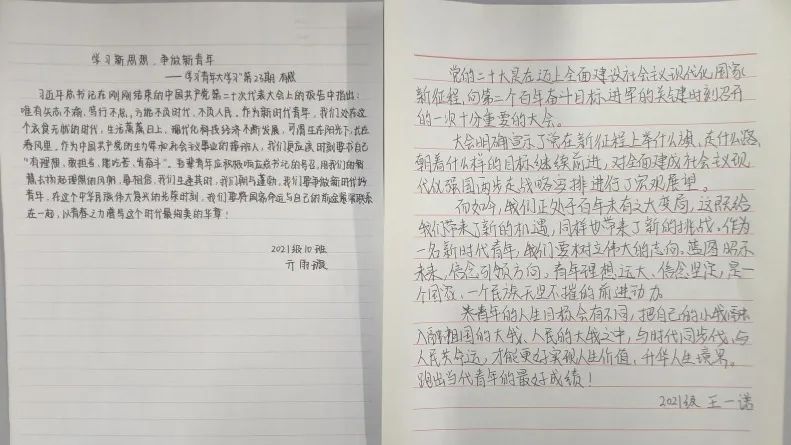 学习新思想，争做新青年
——学习"青年大学习"第23期有感
习近平总书记在刚刚结束的中国共产党第二十次代表大会上的报告中指出：
唯有矢志不渝、笃行不怠，方能不负时代、不负人民。作为新时代青年，我们处在这
个衣食无忧的时代，生活蒸蒸日上，现代化科技经济不断发展，可谓生在阳光下，长在
春风里，作为中国共产党的生力军和社会主义事业的接班人，我们更应该时刻要求自己
"有理想、敢担当、能吃苦、肯奋斗"。吾辈青年应积极响应总书记的号召，用我们的智
慧去扬起理想的风帆，要相信，我们生逢其时，我们朝气蓬勃，我们要争做新时代好
青年，在这个中华民族伟大复兴的光荣时刻，我们要将国家命运与自己的前途紧密联系
在一起，以青春之力谱写这个时代最绚美的华章！
2021级10班
亓雨
党的二十大是在迈上全面建设社会主义现代化国家
新征程，向第二个百年奋斗目标进军的关键时刻召开
的一次十分重要的大会。
大会明确宣示了党在新征程上举什么旗、走什么路、
朝着什么样的目标继续前进，对全面建成社会主义现
代化强国两步走战略安排进行了宏观展望。
而如今，我们正处于百年未有之大变局，这既给
我们带来了新的机遇，同样也带来了新的挑战。作为
一名新时代青年，我们要树立伟大的志向。蓝图昭示
未来，信念引领方向，青年理想远大、信念坚定，是一
个国家、一个民族无坚不摧的前进动力。
青年的人生目标会有不同，把自己的小我融
入祖国的大我、人民的大我之中，与时代同步伐、与
人民共命运，才能更好实现人生价值，升华人生境界。
跑出当代青年的最好成绩！
2021级 王一诺